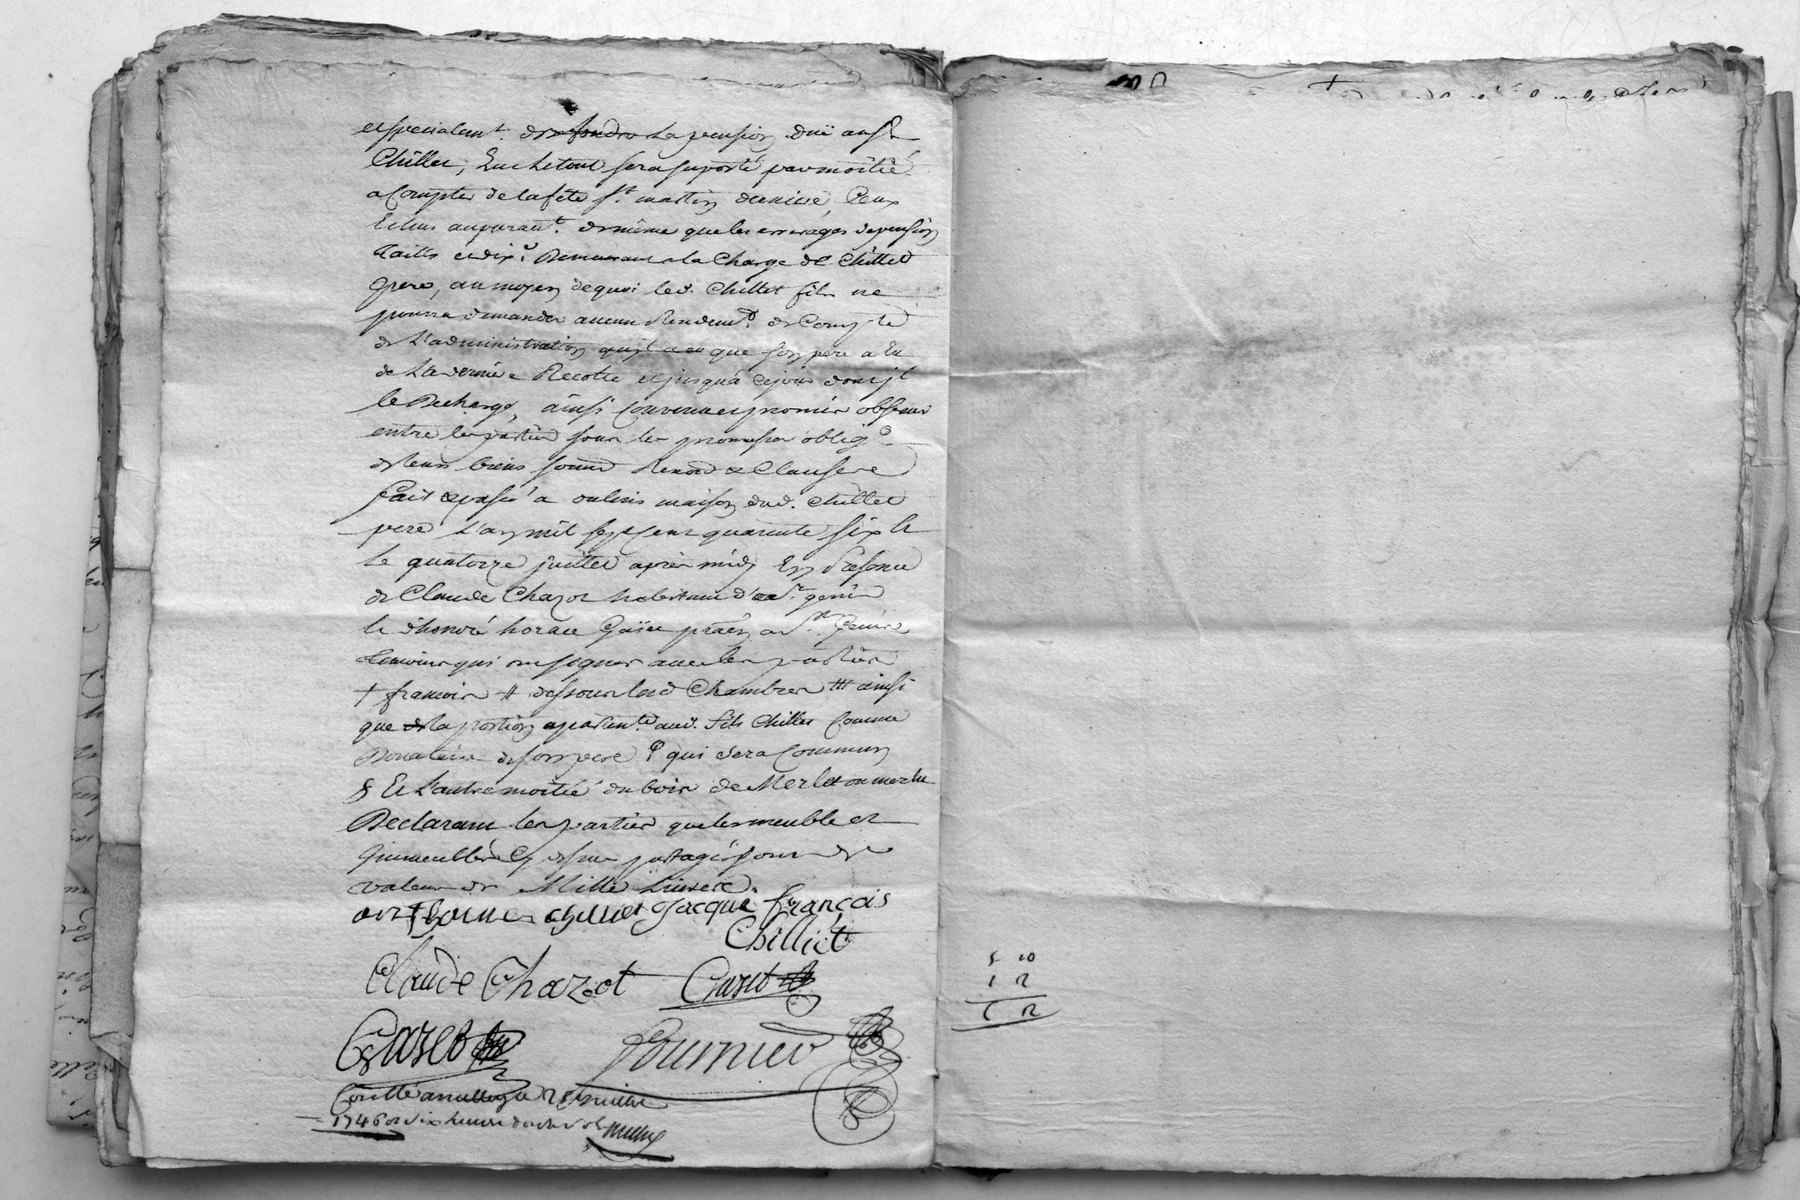 especialemt. de la pension düe au Sr
Chillet, Luc le tout sera suporté par moitié
a Compter de la fete St. martin derniere, Ceux
Echus auparant. de même que les arrerages de pension
Taille et dixe. Demeurant a la Charge de Chillet
pere, au moyen de quoi led. Chillet fils ne
pourra demander aucun Rendemt. de Compte
de L'administration que son pere a Eu
de La derniere Recolte et jusqu'a ce jour dont jl
le Decharge, ainsi Convenu et promis observer
entre les parties sous les promesses oblig.
de leurs biens soumd Renond & Clauses
fait & passé a oulins maison dud. Chillet
pere L'an mil sept cent quarente six &
le quatorze juillet après midy En Presence
de Claude Chazot habitant d'a St. genis
le Sr honoré horace Gazet a St. Genis
temoins qui ont signés avec les parties
+ francois # dessous lesd Chambres ### ainsi
que la portion apartente. aud. fils Chillet Comme
Donataire de son pere φ qui sera Commun
§ Et L'autre moitié du bois de Merlet ou merlu
Declarant les parties que les meuble et
jmmeubles cy dessus partagés sont de
valeur de Mille Livres.
Chilliet Jacque François
Chilliet
Claude Chazot Gazet
Gazet
Fournier
Controllé a juillet
1746
5 10
1 2
6 12